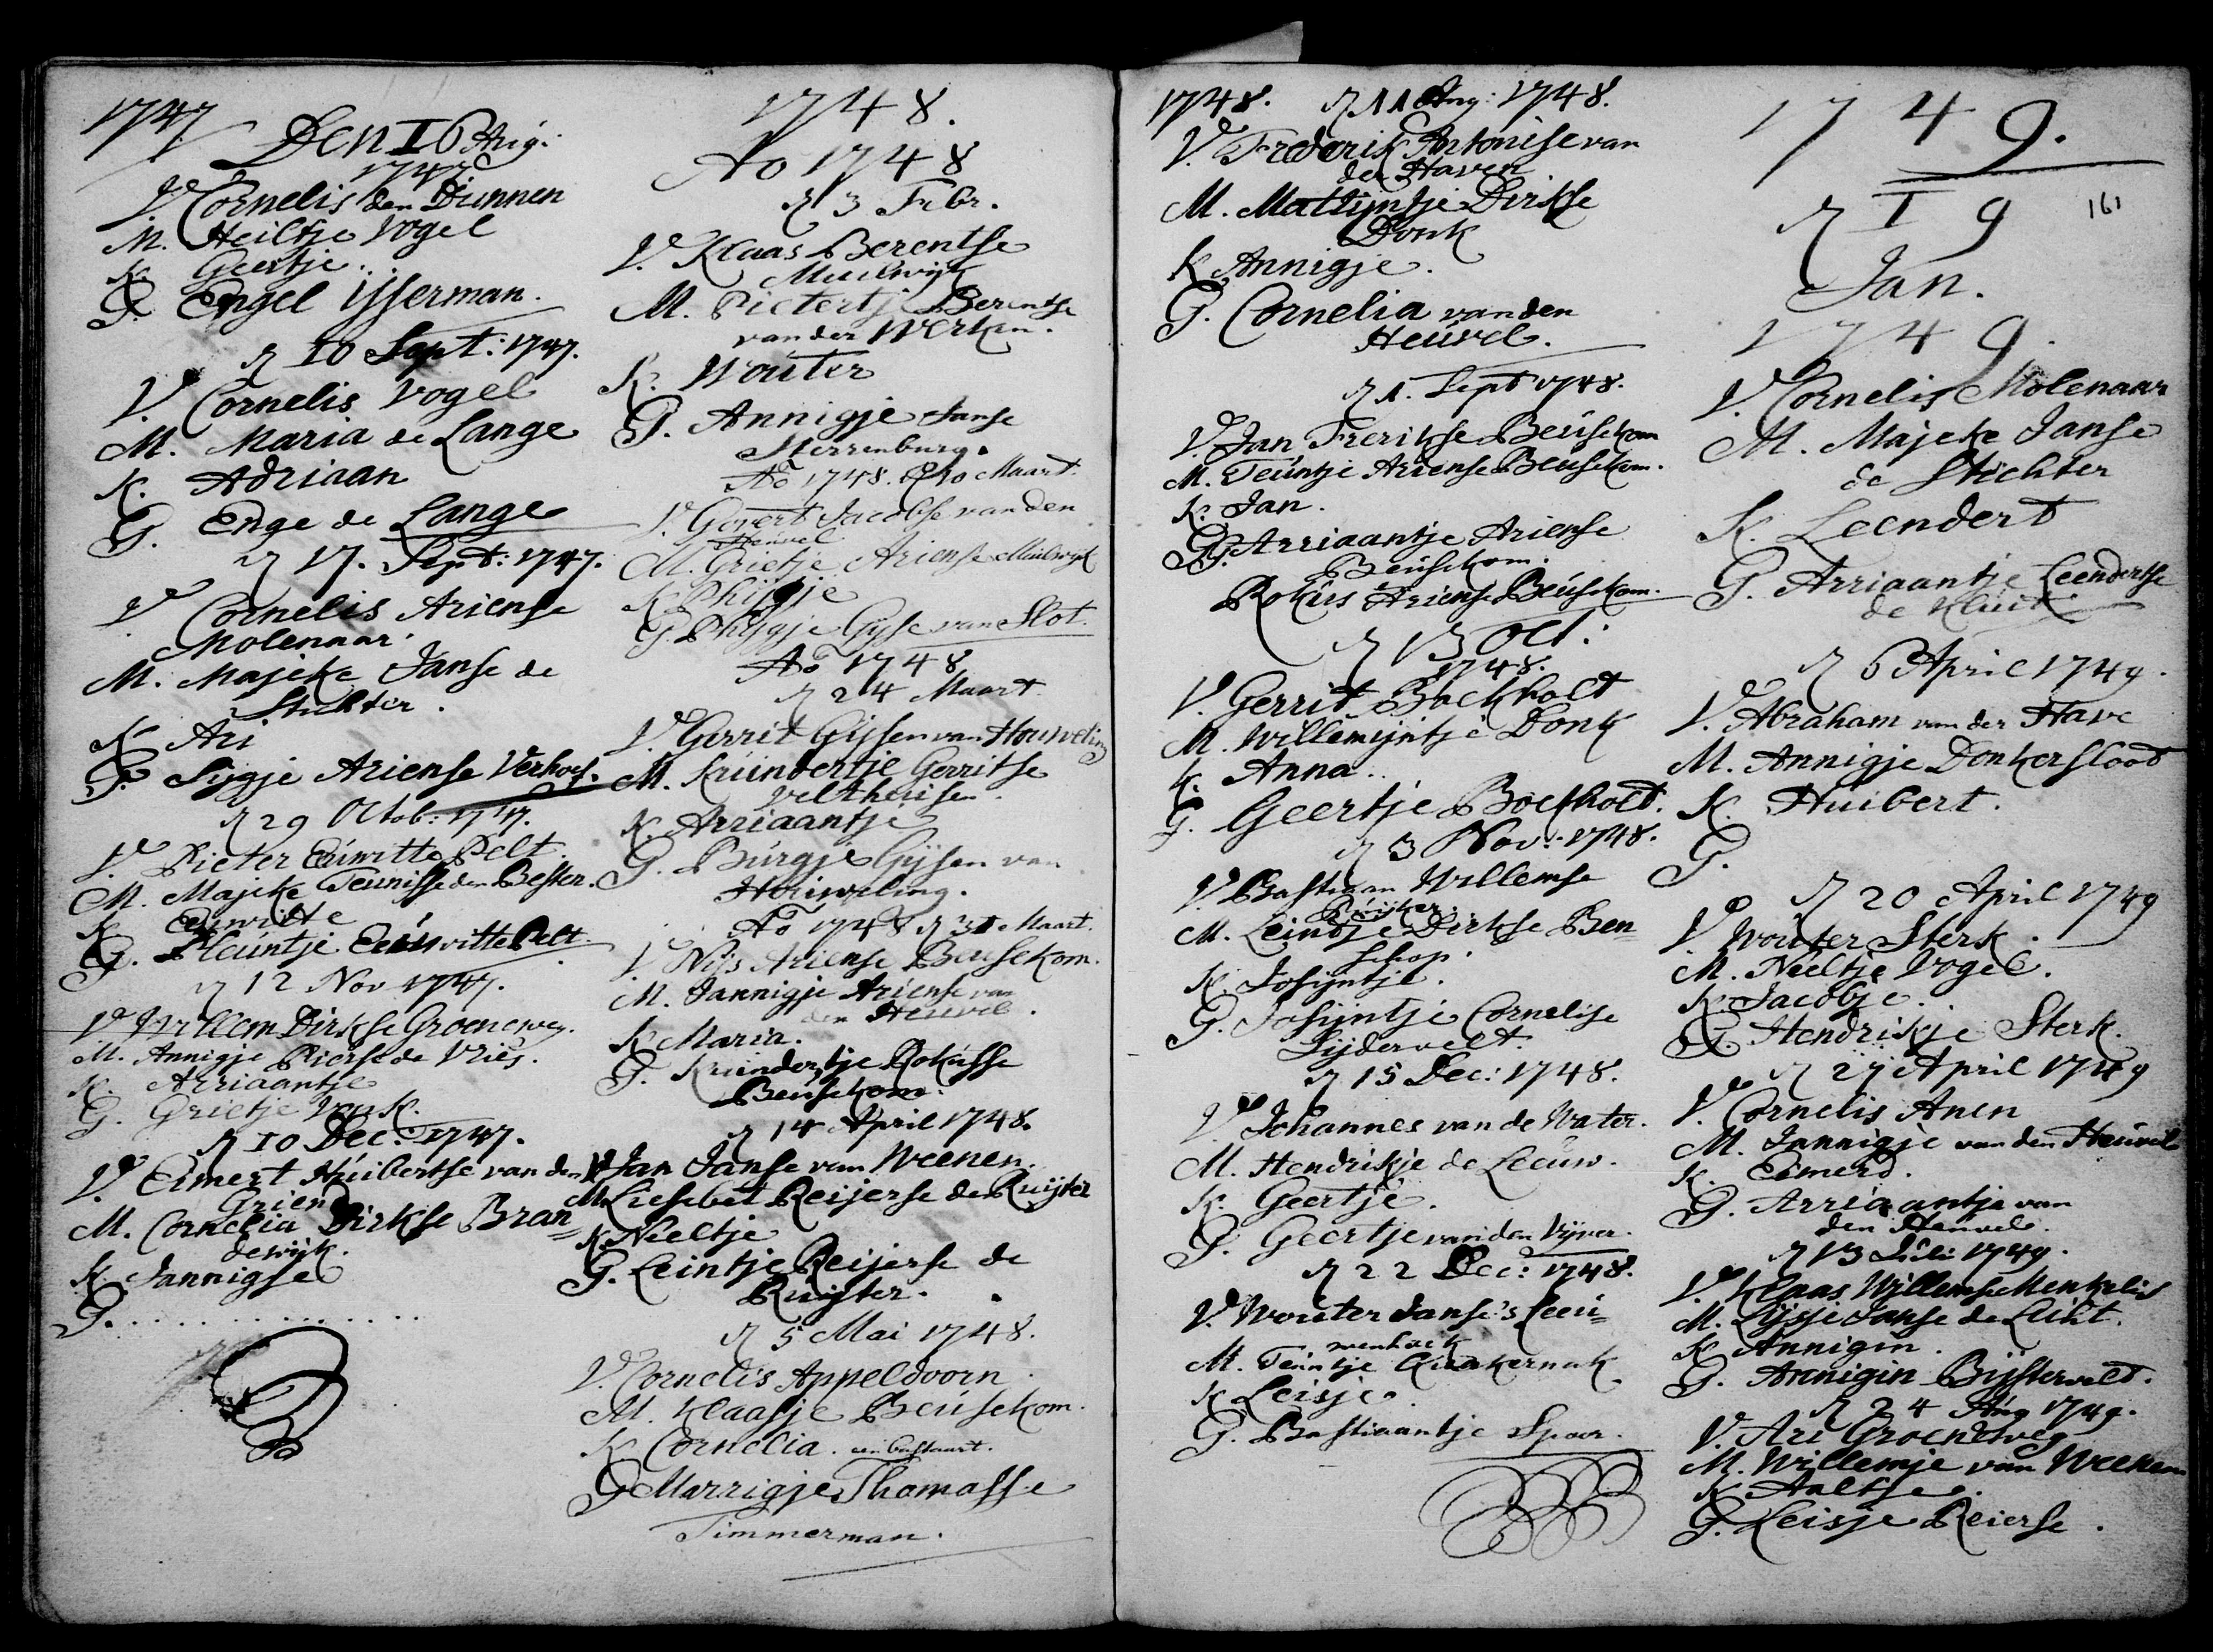 1747
Den 16 Aug.
1747
V. Cornelis den Dunnen
M. Heiltje Vogel
K. Geertje.
G. Engel IJserman.
d 10 Sept: 1747.
V. Cornelis Vogel
M. Maria de Lange
K. Adriaan
G. Enge de Lange
d 17. Sept: 1747.
V. Cornelis Ariense
Molenaar
M. Majeke Janse de
Stichter.
K Ari
G. Sijgje Ariense Verhoef.
d 29 Octob. 1747.
V. Pieter Eeuwitte Pelt.
M. Majeke Teunisse den Besten.
K Eeuwitte
G. Pleuntje Eeuwitte Pelt.
d 12 Nov 1747.
V. Willem Dirkse Groeneweg.
M. Annigje Pierse de Vries.
K. Arriaantje
G. Grietje Vonk.
d 10 Dec: 1747.
V. Eimert Huibertse van den
Grien
M. Cornelia Dirkse Bran=
dewijk.
K. Jannigje
G. . . . . . . . . . . . . .
1748.
Ao 1748
d 3 Febr.
V. Klaas Berentse
Muilwijk
M. Pietertje Berentse
van der Werken.
K. Wouter
G. Annigje Janse
Sterrenburg.
Ao 1748. d 10 Maart.
V. Govert Jacobse van den
Heuvel
M. Grietje Ariense Muilwijk
K Phijgje
G. Phijgje Gijse van Slot.
Ao 1748
d 24 Maart
V. Gerrit Gijsen van Houweling
M. Kuündertje Gerritse
Velthuisen.
K. Arriaantje
G. Burgje Gijsen van
Houweling.
Ao 1748 d 31 Maart.
V Nijs Ariense Beusekom.
M. Jannigje Ariense van
den Heuvel.
K Maria.
G. Kuündertje Rokusse
Beusekom.
d 14 April 1748.
V Jan Janse van Weenen.
M Liesebet Reijerse de Ruijter
K Neeltje
G. Leintje Reijerse de
Ruijter.
d 5 Mai 1748.
V. Cornelis Appeldoorn.
M. Klaasje Beusekom.
K Cornelia. een bastaart.
G Marrigje Thomasse
Timmerman.
1748. d 11 Aug: 1748.
V. Frederik Antonise van
der Haven
M. Mattijntje Dirkse
Donk
K Annigje.
G. Cornelia van den
Heuvel.
d 1. Sept 1748.
V. Jan Frerikse Beusekom
M. Teuntje Ariense Beusekom.
K. Jan.
G. Arriaantje Ariense
Beusekom.
Rokus Ariense Beusekom.
d 13 Oct:
1748.
V. Gerrit Boekholt
M. Willemijntje Donk
K. Anna.
G. Geertje Boekholt.
d 3 Nov: 1748.
V. Bastiaan Willemse
M. Leintje Dirkse Ben=
schop.
K. Josijntje.
G. Josijntje Cornelise
Lijdervelt.
d 15 Dec: 1748.
V. Johannes van de Water.
M. Hendrikje de Leeuw.
K. Geertje.
G. Geertje van den Vijver.
d 22 Dec: 1748.
V. Wouter Janse 's Leeu=
wenhoek
M. Teuntje Quakernak
K Leisje.
G. Bastiaantje Spoor.
1749.
161
d 19
Jan.
1749.
V. Cornelis Molenaar
M. Majeke Janse
de Stichter
K. Leendert
G. Arriaantje Leendertse
de Kluit
d 6 April 1749.
V. Abraham van der Have
M. Annigje Donkersloot
K. Huibert.
G.
d 20 April 1749
V Wouter Sterk.
M. Neeltje Vogel.
K. Jacobje.
G Hendrikje Sterk.
d 27 April 1749
V. Cornelis Anen
M. Jannigje van den Heuvel
K. Eimerd.
G. Arriaantje van
den Heuvel.
d 13 Juli 1749.
V. Klaas Willemse Menkelis
M. Lijsje Janse de Licht.
K Annigin.
G. Annigin Bijsterveld.
d 24 Aug 1749.
V. Ari Groeneweg
M. Willemje van Weenen
K Aaltje.
G. Leisje Reierse.